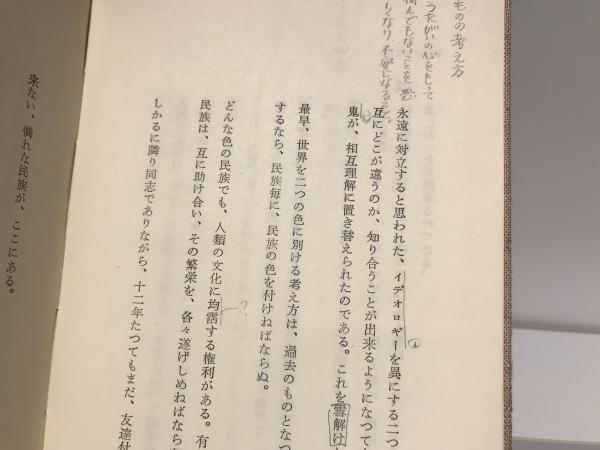 ものの考え方
うたがいの心をもって
何んでもないことを恐
しくなり、不安になること。
永遠に対立すると思われた、イデオロギーを異にする二つ
互にどこが違うのか、知り合うことが出来るようになつて
鬼が、相互理解に置き替えられたのである。これを雪解け
最早、世界を二つの色に別ける考え方は、過去のものとなつ
するなら、民族毎に、民族の色を付けねばならぬ。
どんな色の民族でも、人類の文化に均霑する権利がある。有
?
民族は、互に助け合い、その繁栄を、各々遂げしめねばなら
しかるに隣り同志でありながら、十二年たつてもまだ、友達付
来ない、憐れな民族が、ここにある。